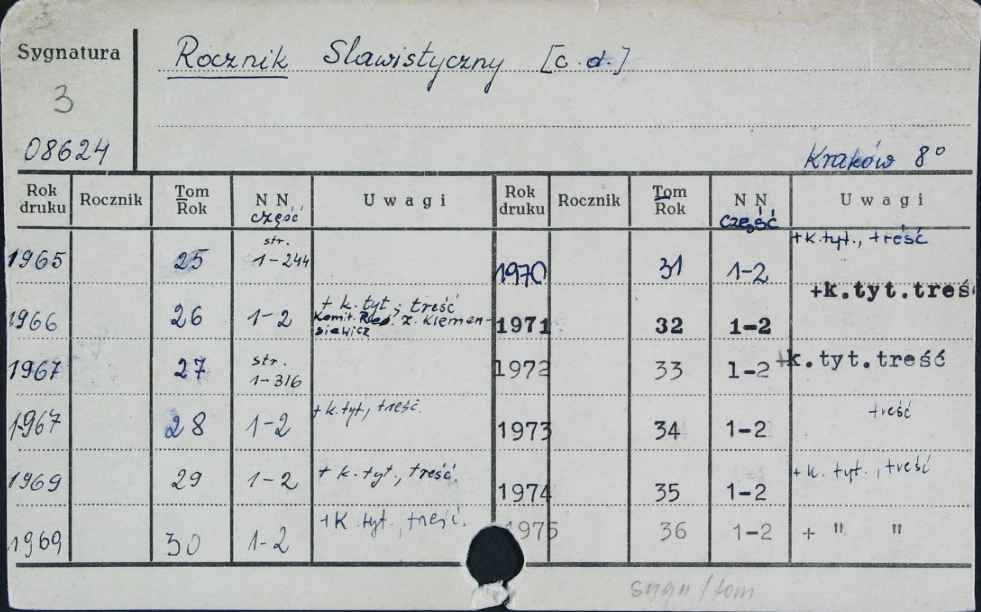 Sygnatura
Rocznik Slawistyczny [c.d.]
3
08624
Kraków 8°
Rok druku Rocznik Tom Rok N N część Uwagi Rok druku Rocznik Tom Rok N N część Uwagi
1965 25 str. 1-244
1970 31 1-2 +k.tyt., treść
1966 26 1-2 + k. tyt; treść
Komit. Red. Z. Klemen-
siewicz
1971 32 1-2 +k.tyt.treść
1967 27 str. 1-316
1972 33 1-2 +k.tyt.treść
1967 28 1-2 +k.tyt, treść.
1973 34 1-2 treść
1969 29 1-2 + k. tyt., treść.
1974 35 1-2 +k. tyt., treść
1969 30 1-2 +K tyt., treść.
1975 36 1-2 + " "
sygn/tom